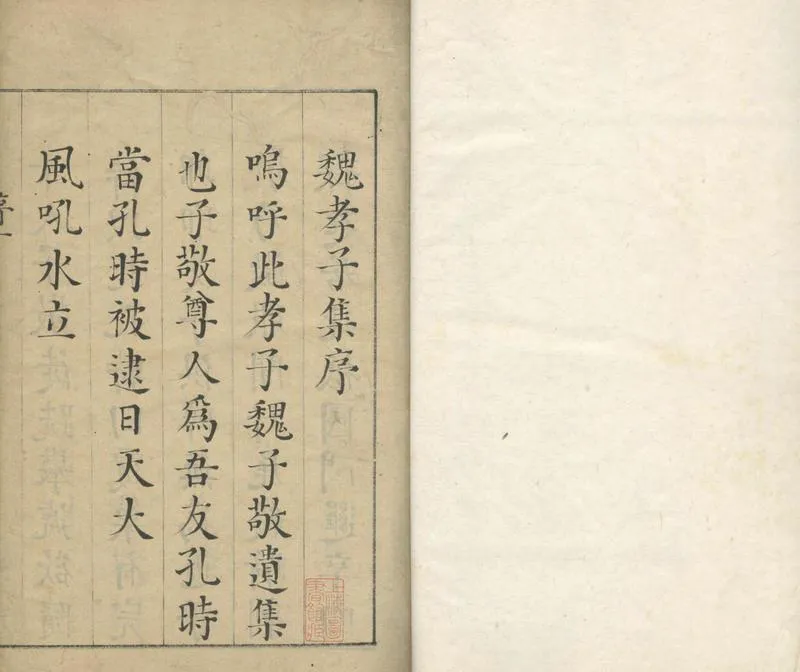 魏孝子集序
嗚呼此孝子魏子敬遺集
也子敬尊人爲吾友孔時
當孔時被逮日天大
風吼水立
序一